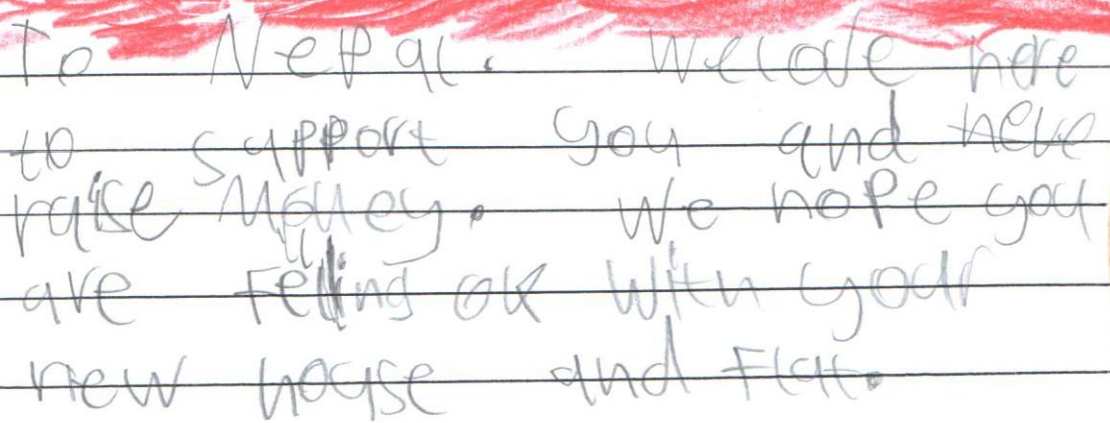 To Nepal. here
to support you and
raise Money. We hope you
are Felling ok with your
new house and Flat.